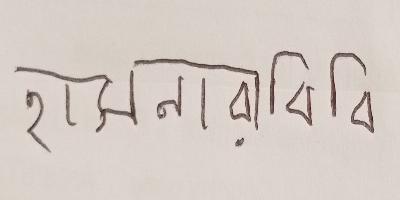 হাসনারা বিবি